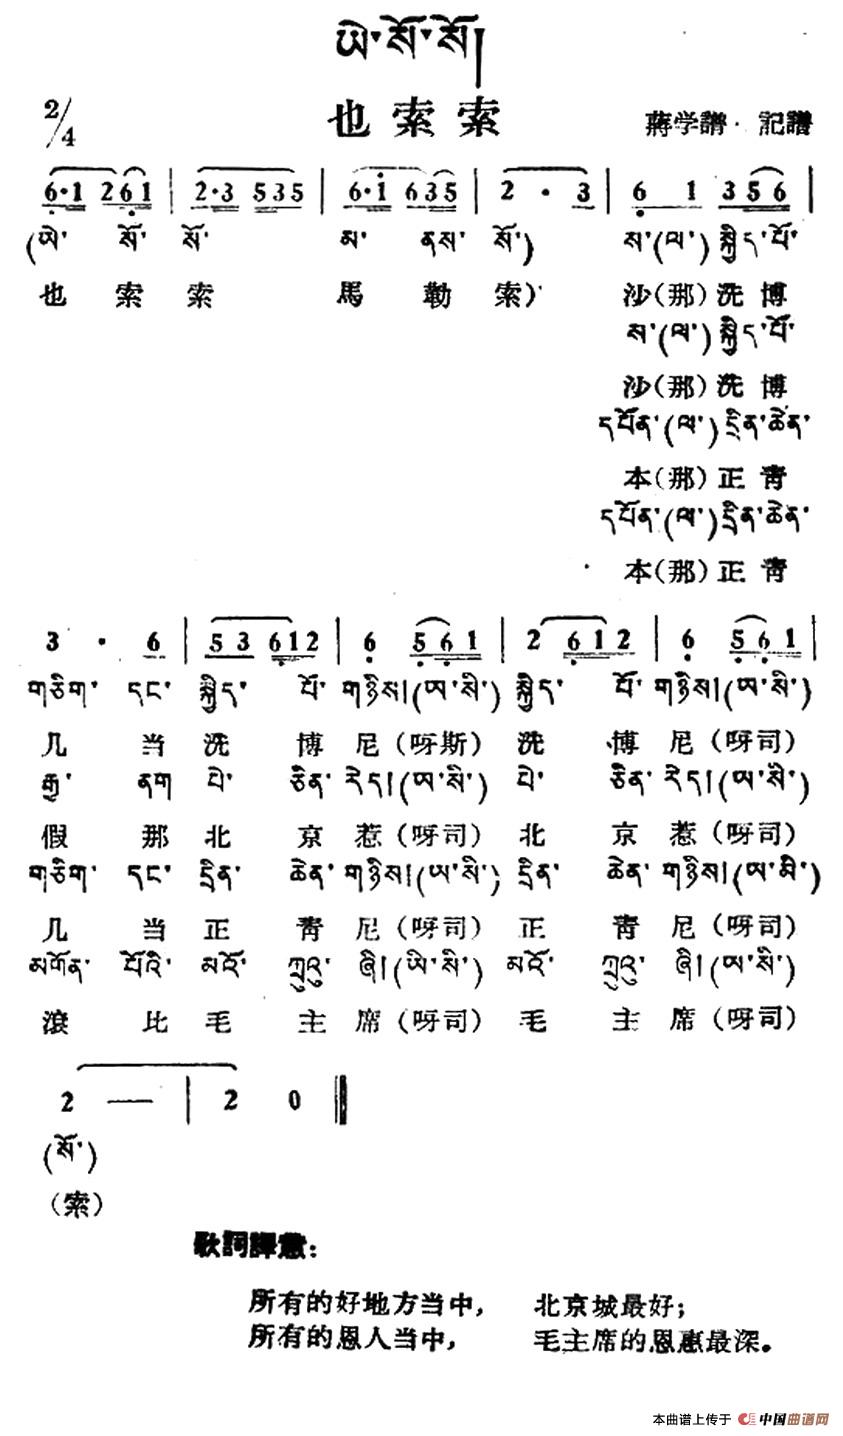 ཡེ་སོ་སོ།
2/4 也索索 蔣学譜·記譜
6·1 261 | 2·3 535 | 6·i 635 | 2 · 3 | 6 1 356 |
(ཡེ་ སོ་ སོ་ མ་ ནས་ སོ་) ས་(ལ་)སྐྱིད་པོ་
也索索 馬勒索) 沙(那)洗博
ས་(ལ་)སྐྱིད་པོ་
沙(那)洗博
དཔོན་(ལ་)དྲིན་ཆེན་
本(那)正青
དཔོན་(ལ་)དྲིན་ཆེན་
本(那)正青
3 · 6 | 53 612 | 6 561 | 2 612 | 6 561 |
གཅིག་ དང་ སྐྱིད་ པོ་ གཉིས།(ཨ་སི་) སྐྱིད་ པོ་ གཉིས།(ཨ་སི་)
几当洗博尼(呀斯)洗博尼(呀司)
རྒྱ་ ནག པེ་ ཅིན་ རེད།(ཨ་སི་) པེ་ ཅིན་ རེད།(ཨ་སི་)
假那北京惹(呀司)北京惹(呀司)
གཅིག་ དང་ དྲིན་ ཆེན་ གཉིས།(ཨ་སི་) དྲིན་ ཆེན་ གཉིས།(ཨ་སི་)
几当正青尼(呀司)正青尼(呀司)
མགོན་ པོའི་ མའོ་ ཀྲུའུ་ ཞི།(ཡི་སི་) མའོ་ ཀྲུའུ་ ཞི།(ཨ་སི་)
滾比毛主席(呀司)毛主席(呀司)
2 — | 2 0 ‖
(སོ་)
(索)
歌詞譯意:
所有的好地方当中, 北京城最好;
所有的恩人当中, 毛主席的恩惠最深。
本曲谱上传于 中国曲谱网